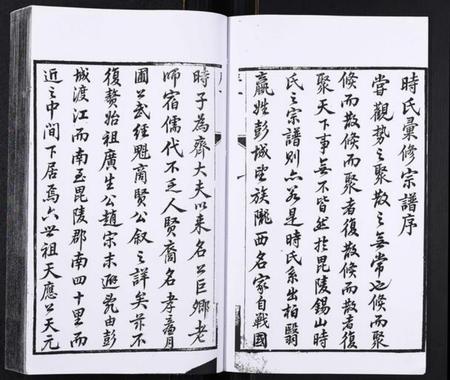 時氏彙修宗譜序
嘗觀勢之聚散之無常也倏而聚
倏而散倏而聚者復散倏而散者復
聚天下事無不皆然扗毘陵錫山時
氏之宗譜則亦若是時氏系出柏翳
嬴姓彭城望族隴西名家自戰國
時子為齊大夫以来名公巨卿老
師宿儒代不乏人賢裔名孝齋月
圃公武經魁商賢公叙之詳矣茲不
復贅始祖廣生公趙宋末避兠由彭
城渡江而南至毘陵郡南四十里而
近之中間下居焉六世祖天應公天元